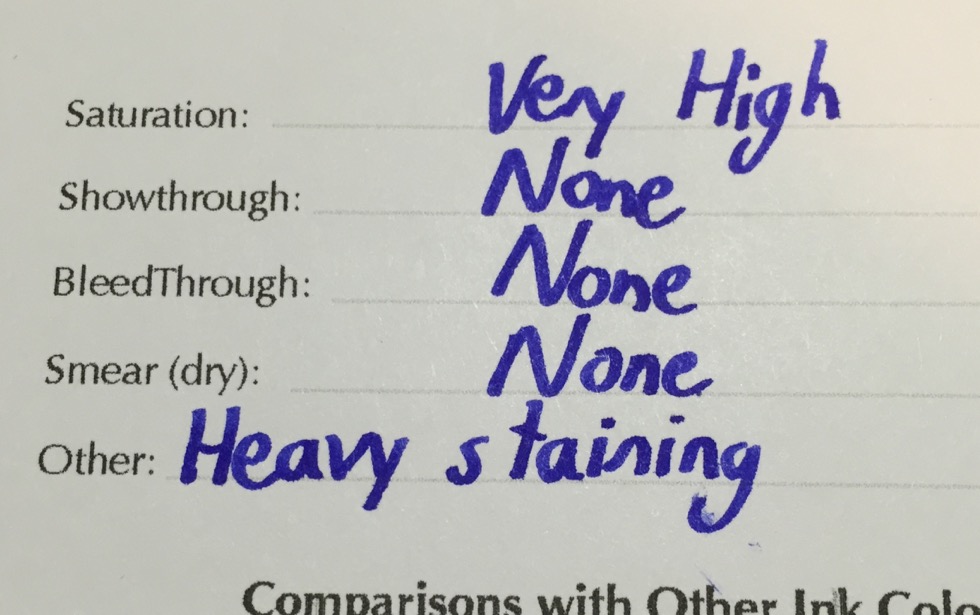 Saturation: Very High
Showthrough: None
BleedThrough: None
Smear (dry): None
Other: Heavy staining
Comparisons with Other Ink